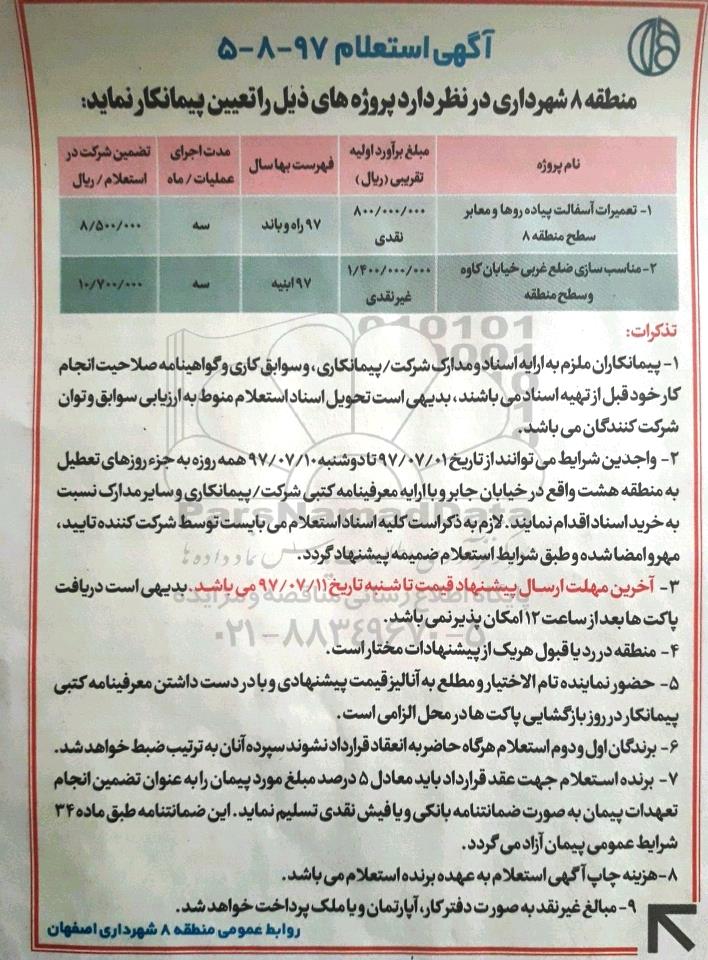 آگهی استعلام ۹۷-۸-۵
منطقه ۸ شهرداری در نظر دارد پروژه های ذیل را تعیین پیمانکار نماید:
نام پروژه	مبلغ برآورد اولیه تقریبی (ریال)	فهرست بها سال	مدت اجرای عملیات / ماه	تضمین شرکت در استعلام / ریال
۱- تعمیرات آسفالت پیاده روها و معابر سطح منطقه ۸	۸۰۰/۰۰۰/۰۰۰ نقدی	۹۷ راه و باند	سه	۸/۵۰۰/۰۰۰
۲- مناسب سازی ضلع غربی خیابان کاوه و سطح منطقه	۱/۴۰۰/۰۰۰/۰۰۰ غیر نقدی	۹۷ ابنیه	سه	۱۰/۷۰۰/۰۰۰
تذکرات:
۱- پیمانکاران ملزم به ارایه اسناد و مدارک شرکت/پیمانکاری، و سوابق کاری و گواهینامه صلاحیت انجام
کار خود قبل از تهیه اسناد می باشند، بدیهی است تحویل اسناد استعلام منوط به ارزیابی سوابق و توان
شرکت کنندگان می باشد.
۲- واجدین شرایط می توانند از تاریخ ۹۷/۰۷/۰۱ تا دوشنبه ۹۷/۰۷/۱۰ همه روزه به جزء روزهای تعطیل
به منطقه هشت واقع در خیابان جابر و با ارایه معرفینامه کتبی شرکت/پیمانکاری و سایر مدارک نسبت
به خرید اسناد اقدام نمایند. لازم به ذکر است کلیه اسناد استعلام می بایست توسط شرکت کننده تایید،
مهر و امضا شده و طبق شرایط استعلام ضمیمه پیشنهاد گردد.
۳- آخرین مهلت ارسال پیشنهاد قیمت تا شنبه تاریخ ۹۷/۰۷/۱۱ می باشد. بدیهی است دریافت
پاکت ها بعد از ساعت ۱۲ امکان پذیر نمی باشد.
۴- منطقه در رد یا قبول هریک از پیشنهادات مختار است.
۵- حضور نماینده تام الاختیار و مطلع به آنالیز قیمت پیشنهادی و با در دست داشتن معرفینامه کتبی
پیمانکار در روز بازگشایی پاکت ها در محل الزامی است.
۶- برندگان اول و دوم استعلام هرگاه حاضر به انعقاد قرارداد نشوند سپرده آنان به ترتیب ضبط خواهد شد.
۷- برنده استعلام جهت عقد قرارداد باید معادل ۵ درصد مبلغ مورد پیمان را به عنوان تضمین انجام
تعهدات پیمان به صورت ضمانتنامه بانکی و یا فیش نقدی تسلیم نماید. این ضمانتنامه طبق ماده ۳۴
شرایط عمومی پیمان آزاد می گردد.
۸- هزینه چاپ آگهی استعلام به عهده برنده استعلام می باشد.
۹- مبالغ غیر نقد به صورت دفتر کار، آپارتمان و یا ملک پرداخت خواهد شد.
روابط عمومی منطقه ۸ شهرداری اصفهان
ParsNamadData
۰۲۱-۸۸۳۴۹۶۷۰-۵